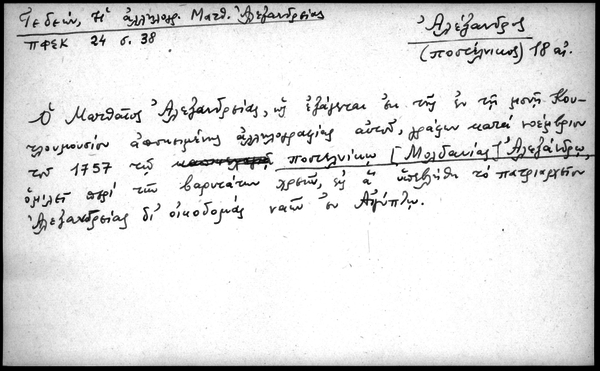 Γεδεών, Ἡ ἀλληλογρ. Ματθ. Ἀλεξανδρείας
ΠΦΣΚ 24 σ. 38
Ἀλέξανδρος
(ποστέλνικος) 18 αἰ.
Ὁ Ματθαῖος Ἀλεξανδρείας, ὡς ἐξάγεται ἐκ τῆς ἐν τῇ μονῇ Κου-
τλουμουσίου ἀποκειμένης ἀλληλογραφίας αὐτοῦ, γράφων κατά νοέμβριον
τοῦ 1757 τῷ ποστελνίκῳ [Μολδαυίας] Ἀλεξάνδρῳ,
ὁμιλεῖ περί τῶν βαρυτάτων χρεῶν, εἰς ἅ ὑπεβλήθη τό πατριαρχεῖον
Ἀλεξανδρείας δι' οἰκοδομάς ναῶν ἐν Αἰγύπτῳ.